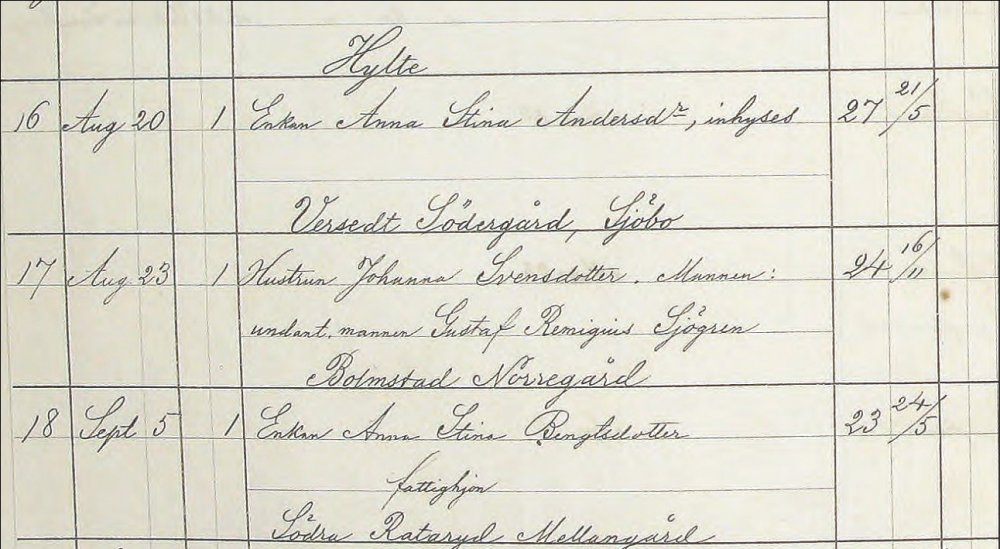 Hylte
16 Aug 20 1 Enkan Anna Stina Andersdr, inhyses 27 21/5
Versedt Södergård, Sjöbo
17 Aug 23 1 Hustrun Johanna Svensdotter. Mannen: 24 16/11
undant. mannen Gustaf Remigius Sjögren
Bolmstad Norregård
18 Sept 5 1 Enkan Anna Stina Bengtsdotter 23 24/5
fattighjon
Södra Rataryd Mellangård